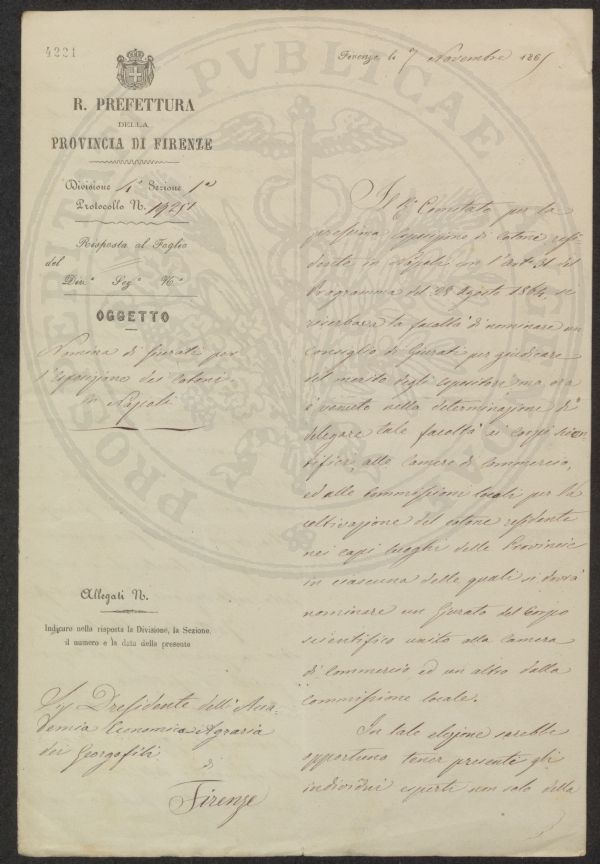 4221
R. PREFETTURA
DELLA
PROVINCIA DI FIRENZE
Divisione 4ª Sezione 1ª
Protocollo N. 19251
Risposta al Foglio
del
Div.ª Sez.ª N.º
OGGETTO
Nomina di Giurati per
l'esposizione dei Cotoni
di Napoli
Allegati N.
Indicare nella risposta la Divisione, la Sezione,
il numero e la data della presente
Sig. Presidente dell'Acca-
demia Economico Agraria
dei Georgofili
di
Firenze
Firenze li 7 Novembre 1865
Il R. Comitato per la
prossima esposizione di cotoni resi-
dente in Napoli con l'art. 31 del
Programma del 28 Agosto 1864 si
riserbava la facoltà di nominare un
Consiglio di Giurati per giudicare
del merito degli espositori, ma ora
è venuto nella determinazione di
delegare tale facoltà ai corpi scien
tifici, alle Camere di Commercio,
ed alle Commissioni locali per la
coltivazione del cotone residente
nei capi luoghi delle Provincie
in ciascuna delle quali si dovrà
nominare un Giurato del Corpo
scientifico unito alla Camera
di Commercio ed un altro dalla
Commissione locale.
In tale elezione sarebbe
opportuno tener presente gli
individui esperti non solo della
PROSPERITATI PVBLICAE